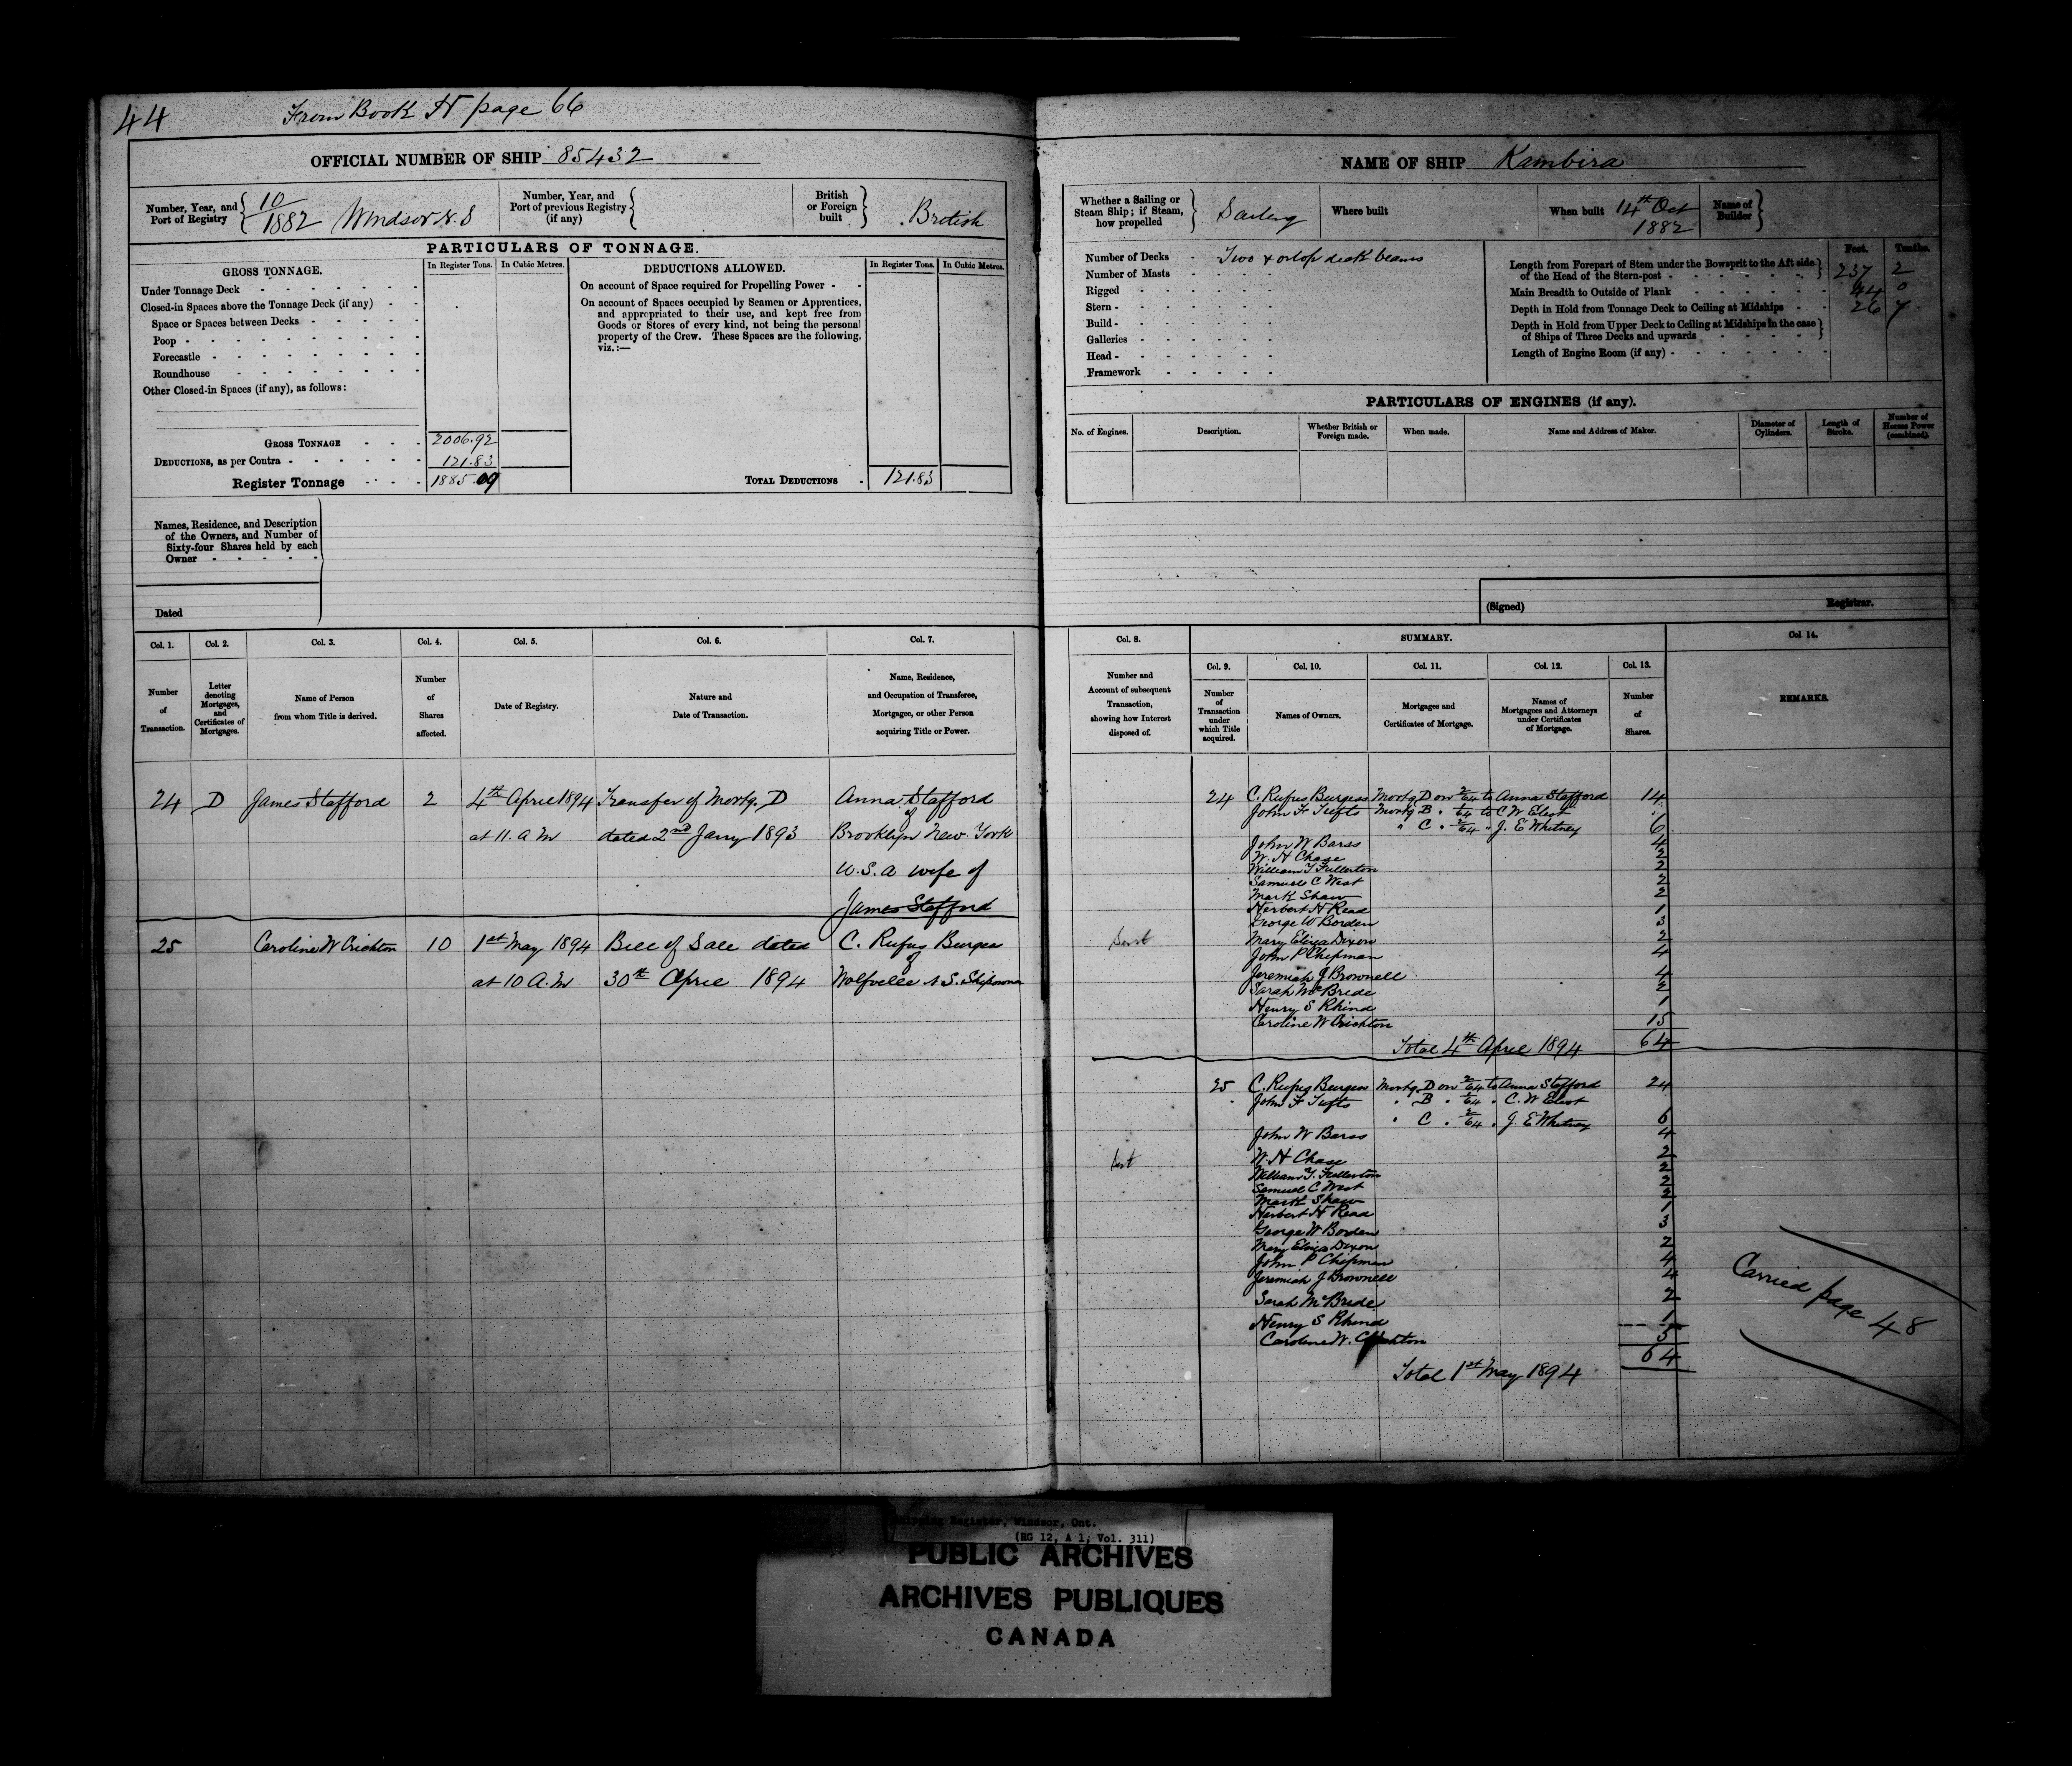 44
From Book H page 66
OFFICIAL NUMBER OF SHIP 85432
Number, Year, and Port of Registry 10/1882 Windsor N. S
Number, Year, and Port of previous Registry (if any)
British or Foreign built British
PARTICULARS OF TONNAGE.
GROSS TONNAGE. In Register Tons. In Cubic Metres.
Under Tonnage Deck
Closed-in Spaces above the Tonnage Deck (if any)
Space or Spaces between Decks
Poop
Forecastle
Roundhouse
Other Closed-in Spaces (if any), as follows:
GROSS TONNAGE 2006.92
DEDUCTIONS, as per Contra 121.83
Register Tonnage 1885.09
DEDUCTIONS ALLOWED. In Register Tons. In Cubic Metres.
On account of Space required for Propelling Power
On account of Spaces occupied by Seamen or Apprentices,
and appropriated to their use, and kept free from
Goods or Stores of every kind, not being the personal
property of the Crew. These Spaces are the following,
viz.:—
TOTAL DEDUCTIONS 121.83
Names, Residence, and Description
of the Owners, and Number of
Sixty-four Shares held by each
Owner
Dated
Col. 1. Col. 2. Col. 3. Col. 4. Col. 5. Col. 6. Col. 7.
Number of Transaction.
Letter denoting Mortgages, and Certificates of Mortgages.
Name of Person from whom Title is derived.
Number of Shares affected.
Date of Registry.
Nature and Date of Transaction.
Name, Residence, and Occupation of Transferee, Mortgagee, or other Person acquiring Title or Power.
24 D James Stafford 2 4th April 1894 Transfer of Mortg. D Anna Stafford
of
at 11. A M dated 2nd Jany 1893 Brooklyn New York
U.S.A wife of
James Stafford
25 Caroline W Crichton 10 1st May 1894 Bill of Sale dated C. Rufus Burgess
of
at 10 A.M 30th April 1894 Wolfville N.S. Shipowner
NAME OF SHIP Kambira
Whether a Sailing or Steam Ship; if Steam, how propelled Sailing
Where built
When built 14th Oct 1882
Name of Builder
Number of Decks Two & orlop deck beams
Number of Masts
Rigged
Stern
Build
Galleries
Head
Framework
Feet. Tenths.
Length from Forepart of Stem under the Bowsprit to the Aft side
of the Head of the Stern-post 237 2
Main Breadth to Outside of Plank 44 0
Depth in Hold from Tonnage Deck to Ceiling at Midships 26 7
Depth in Hold from Upper Deck to Ceiling at Midships in the case
of Ships of Three Decks and upwards
Length of Engine Room (if any)
PARTICULARS OF ENGINES (if any).
No. of Engines. Description. Whether British or Foreign made. When made. Name and Address of Maker. Diameter of Cylinders. Length of Stroke. Number of Horse Power (combined).
(Signed) Registrar.
Col. 8. SUMMARY. Col. 14.
Col. 9. Col. 10. Col. 11. Col. 12. Col. 13.
Number and Account of subsequent Transaction, showing how Interest disposed of.
Number of Transaction under which Title acquired.
Names of Owners.
Mortgages and Certificates of Mortgage.
Names of Mortgagees and Attorneys under Certificates of Mortgage.
Number of Shares.
REMARKS.
24 C. Rufus Burgess Mortg. D on 2/64 to Anna Stafford 14
John F Tufts Mortg B to C W Eliot
" C " 2/64 " J. E Whitney 6
John W Barss 4
W. H Chase 2
William Y Fullerton 2
Samuel C West 2
Mark Shaw 2
Herbert H Read 1
George W Borden 3
Mary Eliza Dixon 2
John P Chipman 4
Jeremiah J Brownell 4
Sarah McBride 2
Henry S Rhind 1
Caroline W Crichton 15
Total 4th April 1894 64
25 C. Rufus Burgess Mortg. D on 2/64 to Anna Stafford 24
John F Tufts " B " C. W Eliot
" C " 2/64 " J. E Whitney 6
John W Barss 4
W. H Chase 2
William Y. Fullerton 2
Samuel C West 2
Mark Shaw 2
Herbert H Read 1
George W Borden 3
Mary Eliza Dixon 2
John P Chipman 4
Jeremiah J Brownell 4
Sarah McBride 2
Henry S Rhind 1
Caroline W. Crichton 5
64
Total 1st May 1894
Carried page 48
Shipping Register, Windsor, Ont.
(RG 12, A 1, Vol. 311)
PUBLIC ARCHIVES
ARCHIVES PUBLIQUES
CANADA